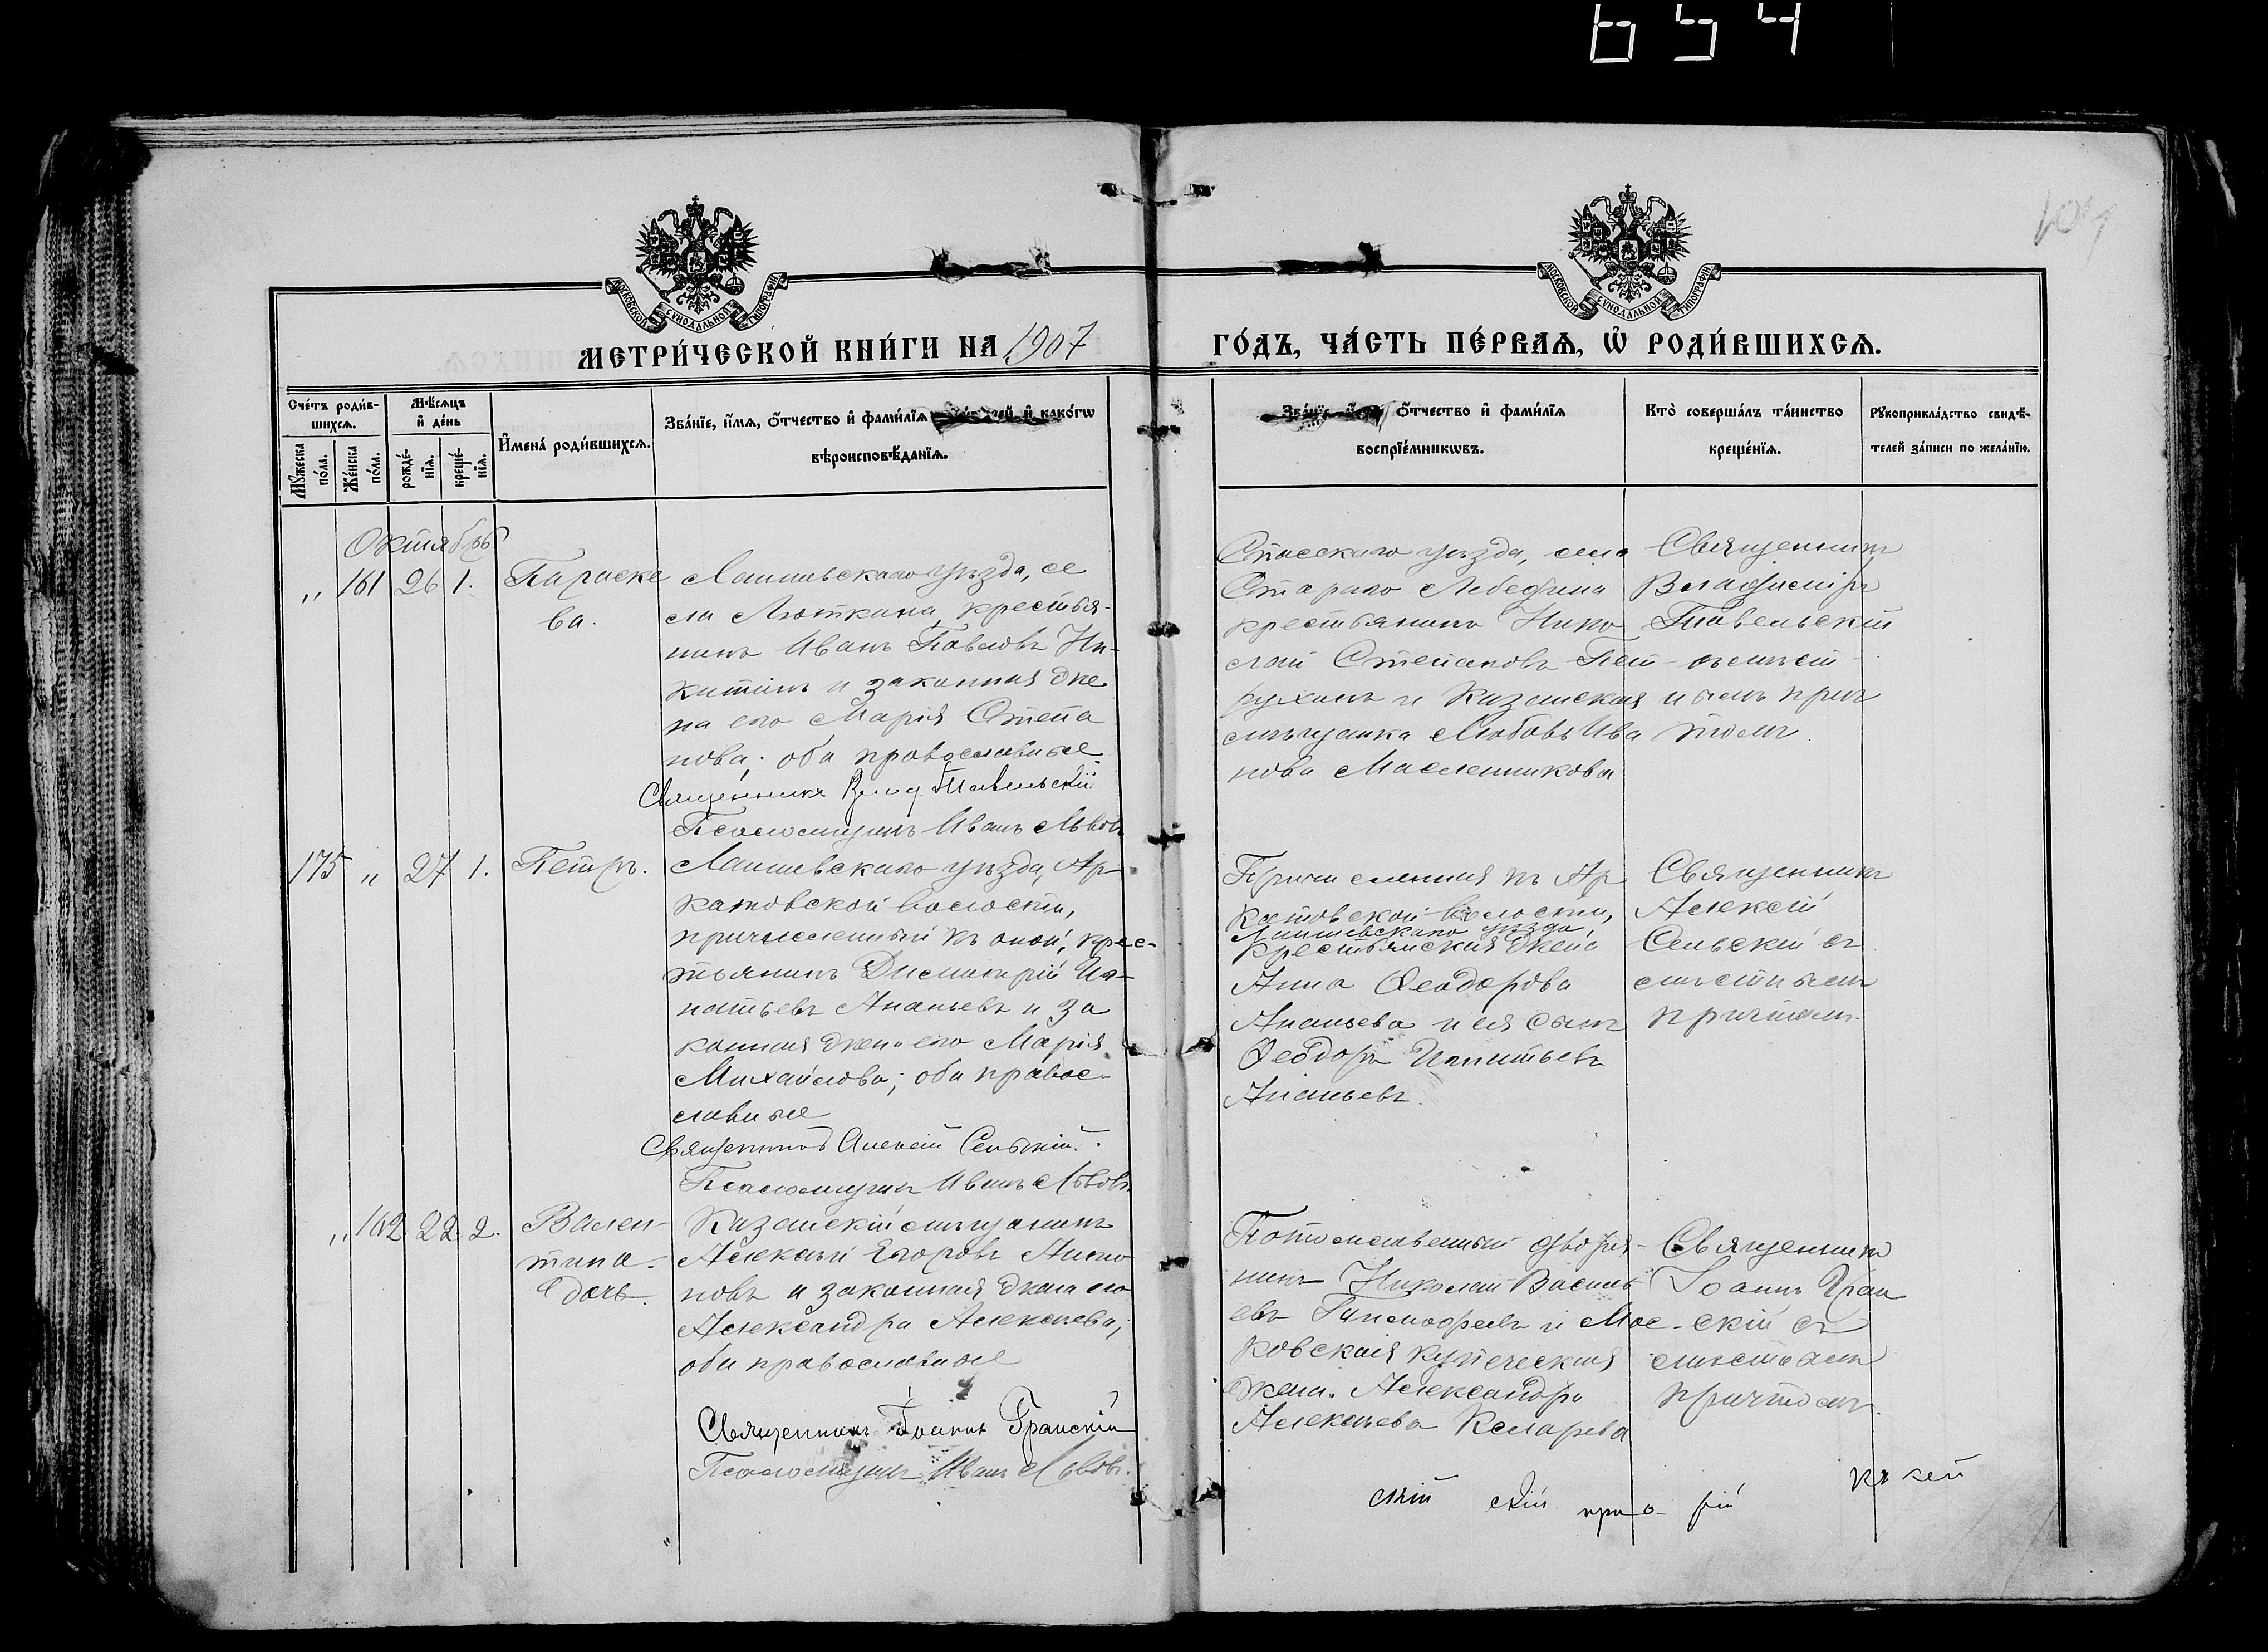 654
107
МОСКОВСКОЙ СУНОДАЛЬНОЙ ТИПОГРАФІИ
МОСКОВСКОЙ СУНОДАЛЬНОЙ ТИПОГРАФІИ
МЕТРИ́ЧЕСКОЙ КНИ́ГИ НА 1907
ГО́ДЪ, ЧА́СТЬ ПЕ́РВАѦ, Ѡ҆ РОДИ́ВШИХСѦ.
Сче́тъ роди́в-
шихсѧ.
Мѣ́сѧцъ
и҆ де́нь
Мꙋ́жеска
по́ла.
Же́нска
по́ла.
рожде́-
нїѧ.
креще́-
нїѧ.
И҆мена̀ роди́вшихсѧ.
Зва́нїе, и҆́мѧ, ѻ҆́тчество и҆ фами́лїѧ и҆ како́гѡ
вѣроисповѣ́данїѧ.
Зва́нїе, ѻ҆́тчество и҆ фами́лїѧ
воспрїе́мникѡвъ.
Кто̀ соверша́лъ та́инство
креще́нїѧ.
Рꙋкоприкла́дство свидѣ́-
телей за́писи по жела́нїю.
Октябрь
„ 161 26 1.
Параске
ва.
Лаишевскаго уѣзда, се
ла Люткина, крестья-
нинъ Иванъ Павловъ Ни-
китинъ и законная же
на его Марія Степа
нова; оба православные.
Священникъ Влад. Павельскій
Псаломщикъ Иванъ Львовъ
Спасскаго уѣзда, села
Стараго Лебедина
крестьянинъ Нико
лай Степановъ Пет-
рухинъ и Казанская
мѣщанка Любовь Ива
нова Масленникова
Священникъ
Владиміръ
Павельскій
съ мѣст-
нымъ прич
томъ.
175 „ 27 1.
Петръ.
Лаишевскаго уѣзда, Ар-
катовской волости,
причисленный къ оной, крес-
тьянинъ Димитрій Иг-
натьевъ Ананьевъ и за
конная жена его Марія
Михайлова; оба правос-
лавные
Священникъ Алексій Сельскій.
Псаломщикъ Иванъ Львовъ.
Причисленная къ Ар
катовской волости,
Лаишевскаго уѣзда,
крестьянская жена
Анна Ѳеодорова
Ананьева и ея сынъ
Ѳеодоръ Игнатьевъ
Ананьевъ.
Священникъ
Алексій
Сельскій съ
мѣстнымъ
причтомъ.
„ 162 22. 2.
Вален-
тина.
дочь.
Казанскій мѣщанинъ
Алексѣй Егоровъ Анто
новъ и законная жена его
Александра Алексѣева;
оба православные
Священникъ Іоаннъ Гранскій
Псаломщикъ Иванъ Львовъ.
Потомственный дворя-
нинъ Николай Василь
евъ и Мос-
ковская купеческая
жена. Александра
Алексѣева Келарева
Священникъ
Іоаннъ Гран
скій съ
мѣстнымъ
причтомъ.
скій скій при о- рій къ сей